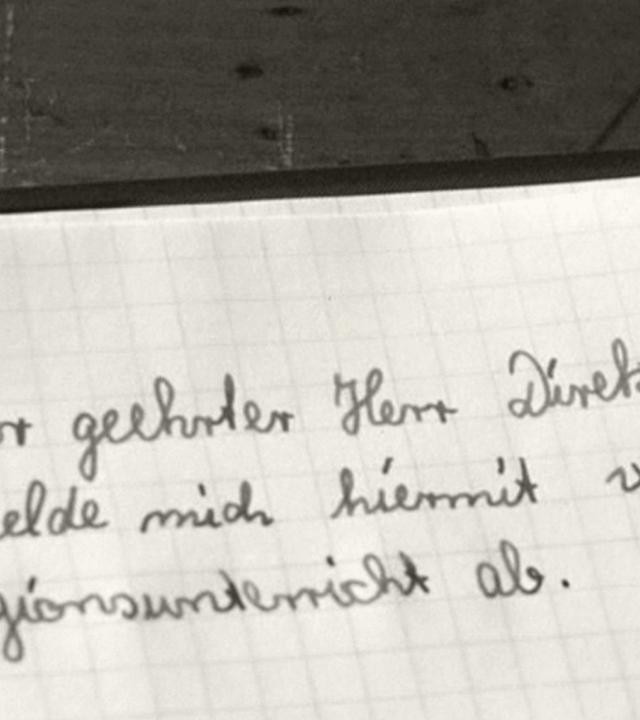 r geehrter Herr Direkt
elde mich hiermit v
gionsunterricht ab.